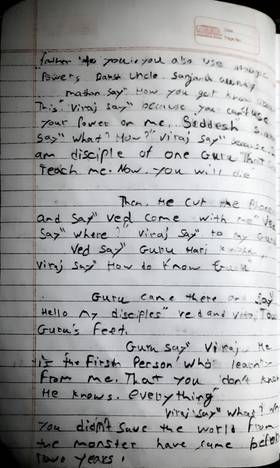 father to you. you also use magic
Powers Danish Uncle. Sanjana aunty
madan say" How you get know
This". Viraj say" because you can't use
your Power on me. Siddesh
say" What? How?" Viraj say" because I
am disciple of one Guru That
Teach me. Now. You will die
Then. He cut the
and say" ved come with me"
say" where?" Viraj say" to my
Ved say" Guru Hari
Viraj say" How to know
Guru came there say"
Hello my disciples" ved and
Guru's Feet.
Guru say" Viraj. He
is the First Person Who learn
From me. That you "don't know
He knows. everything"
Viraj say" What?
You didn't save the world From
the monster have came before
Two years!